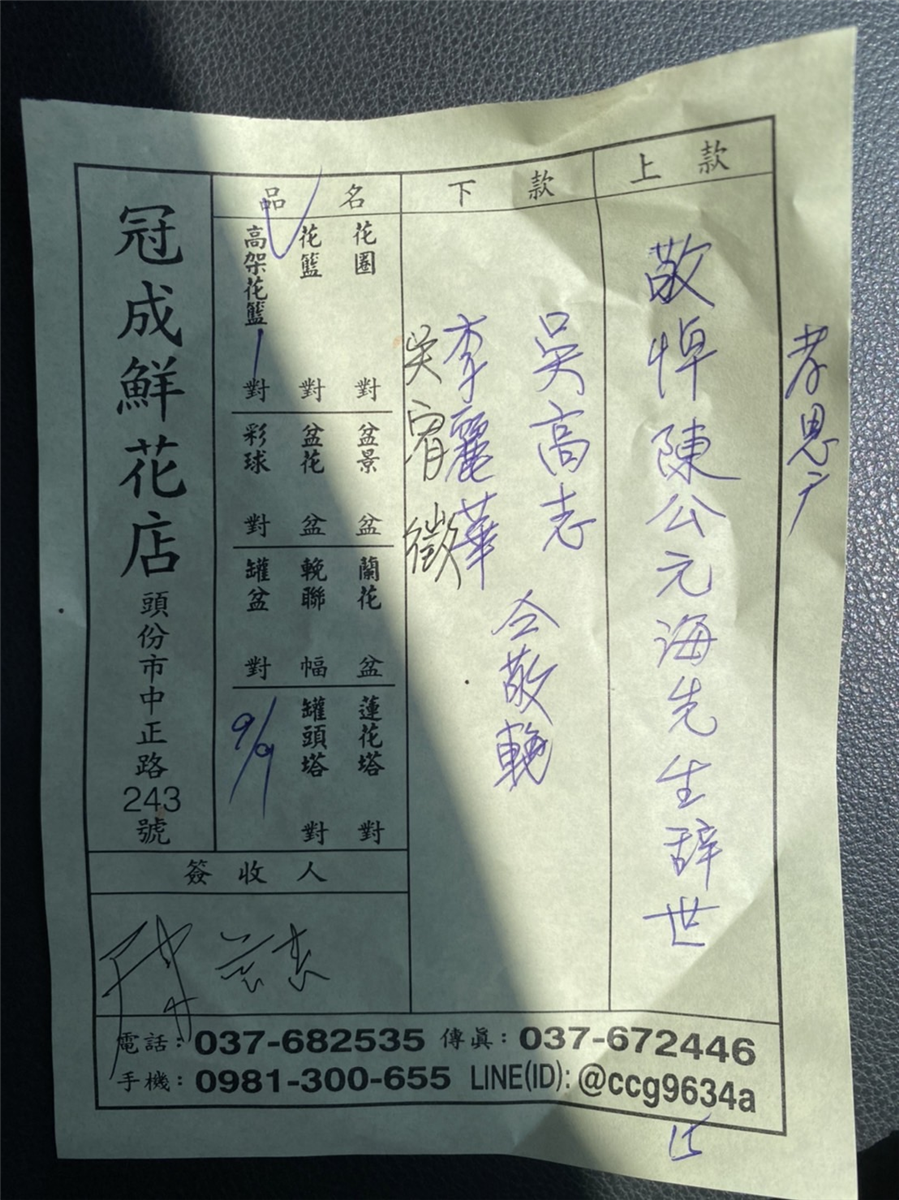 孝恩户
上款
敬悼陳公元海先生辞世
下款
吳高志
李麗華
吳宥徵
仝敬輓
品名
花圈 對
花籃 對
高架花籃 1 對
盆景 盆
盆花 盆
彩球 對
蘭花 盆
輓聯 幅
罐盆 對
蓮花塔 對
罐頭塔 對
9/9
冠成鮮花店 頭份市中正路243號
簽收人
電話:037-682535 傳眞:037-672446
手機:0981-300-655 LINE(ID):@ccg9634a
15